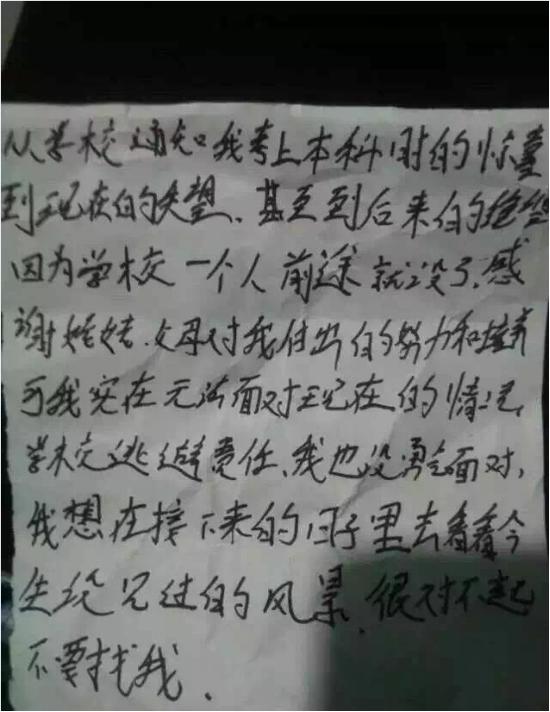 从学校通知我考上本科时的惊喜
到现在的失望、甚至到后来的绝望
因为学校一个人前途就没了,感
谢姥姥、父母对我付出的努力和培养
可我实在无法面对现在的情况,
学校逃避责任、我也没勇气面对,
我想在接下来的日子里去看看今
生没见过的风景、很对不起
不要找我.